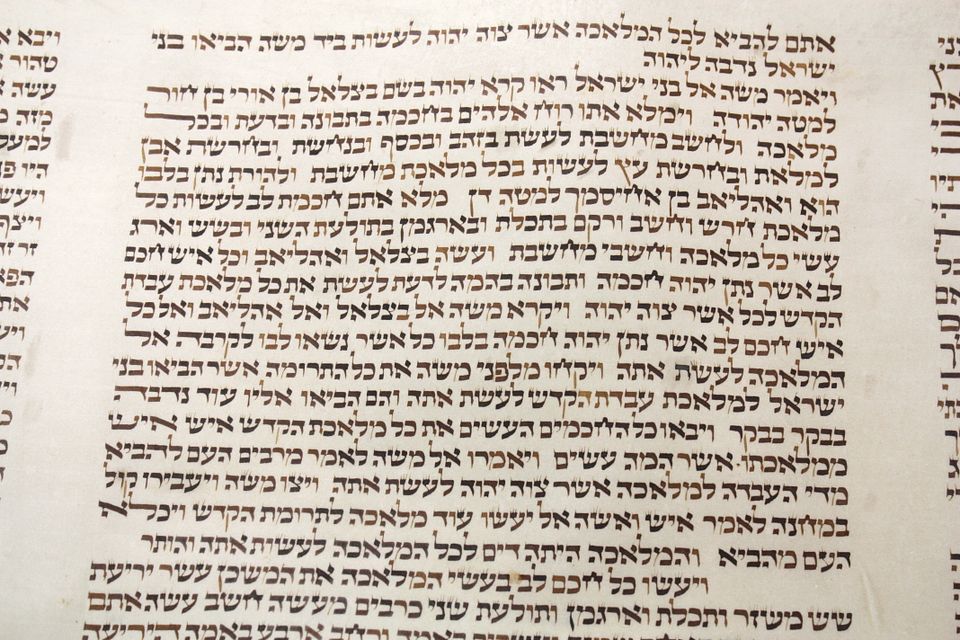 אתם להביא לכל המלאכה אשר צוה יהוה לעשות ביד משה הביאו בני
ישראל נדבה ליהוה
ויאמר משה אל בני ישראל ראו קרא יהוה בשם בצלאל בן אורי בן חור
למטה יהודה וימלא אתו רוח אלהים בחכמה בתבונה ובדעת ובכל
מלאכה ולחשב מחשבת לעשת בזהב ובכסף ובנחשת ובחרשת אבן
למלאת ובחרשת עץ לעשות בכל מלאכת מחשבת ולהורת נתן בלבו
הוא ואהליאב בן אחיסמך למטה דן מלא אתם חכמת לב לעשות כל
מלאכת חרש וחשב ורקם בתכלת ובארגמן בתולעת השני ובשש וארג
עשי כל מלאכה וחשבי מחשבת ועשה בצלאל ואהליאב וכל איש חכם
לב אשר נתן יהוה חכמה ותבונה בהמה לדעת לעשת את כל מלאכת עבדת
הקדש לכל אשר צוה יהוה ויקרא משה אל בצלאל ואל אהליאב ואל כל
איש חכם לב אשר נתן יהוה חכמה בלבו כל אשר נשאו לבו לקרבה אל
המלאכה לעשת אתה ויקחו מלפני משה את כל התרומה אשר הביאו בני
ישראל למלאכת עבדת הקדש לעשת אתה והם הביאו אליו עוד נדבה
בבקר בבקר ויבאו כל החכמים העשים את כל מלאכת הקדש איש איש
ממלאכתו אשר המה עשים ויאמרו אל משה לאמר מרבים העם להביא
מדי העבדה למלאכה אשר צוה יהוה לעשת אתה ויצו משה ויעבירו קול
במחנה לאמר איש ואשה אל יעשו עוד מלאכה לתרומת הקדש ויכלא
העם מהביא והמלאכה היתה דים לכל המלאכה לעשות אתה והותר
ויעשו כל חכם לב בעשי המלאכה את המשכן עשר יריעת
שש משזר ותכלת וארגמן ותולעת שני כרבים מעשה חשב עשה אתם